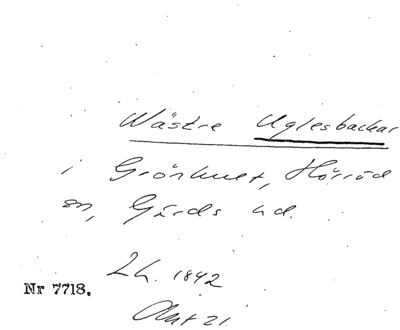 Wästre Uglesbackar
i Grörhult, Hörröd
sn, Gärds hd.
Lh. 1842
Akt 21
Nr 7718.